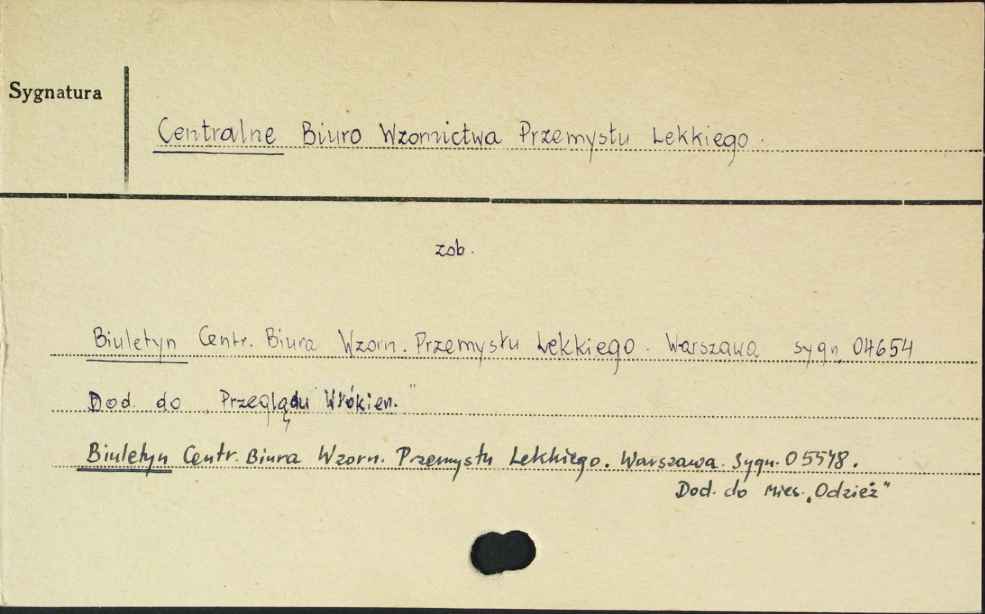 Sygnatura
Centralne Biuro Wzornictwa Przemysłu Lekkiego.
zob.
Biuletyn Centr. Biura Wzorn. Przemysłu Lekkiego. Warszawa sygn. 04654
Dod. do „Przeglądu Włókien."
Biuletyn Centr. Biura Wzorn. Przemysłu Lekkiego. Warszawa. Sygn. 05578.
Dod. do mies. „Odzież"